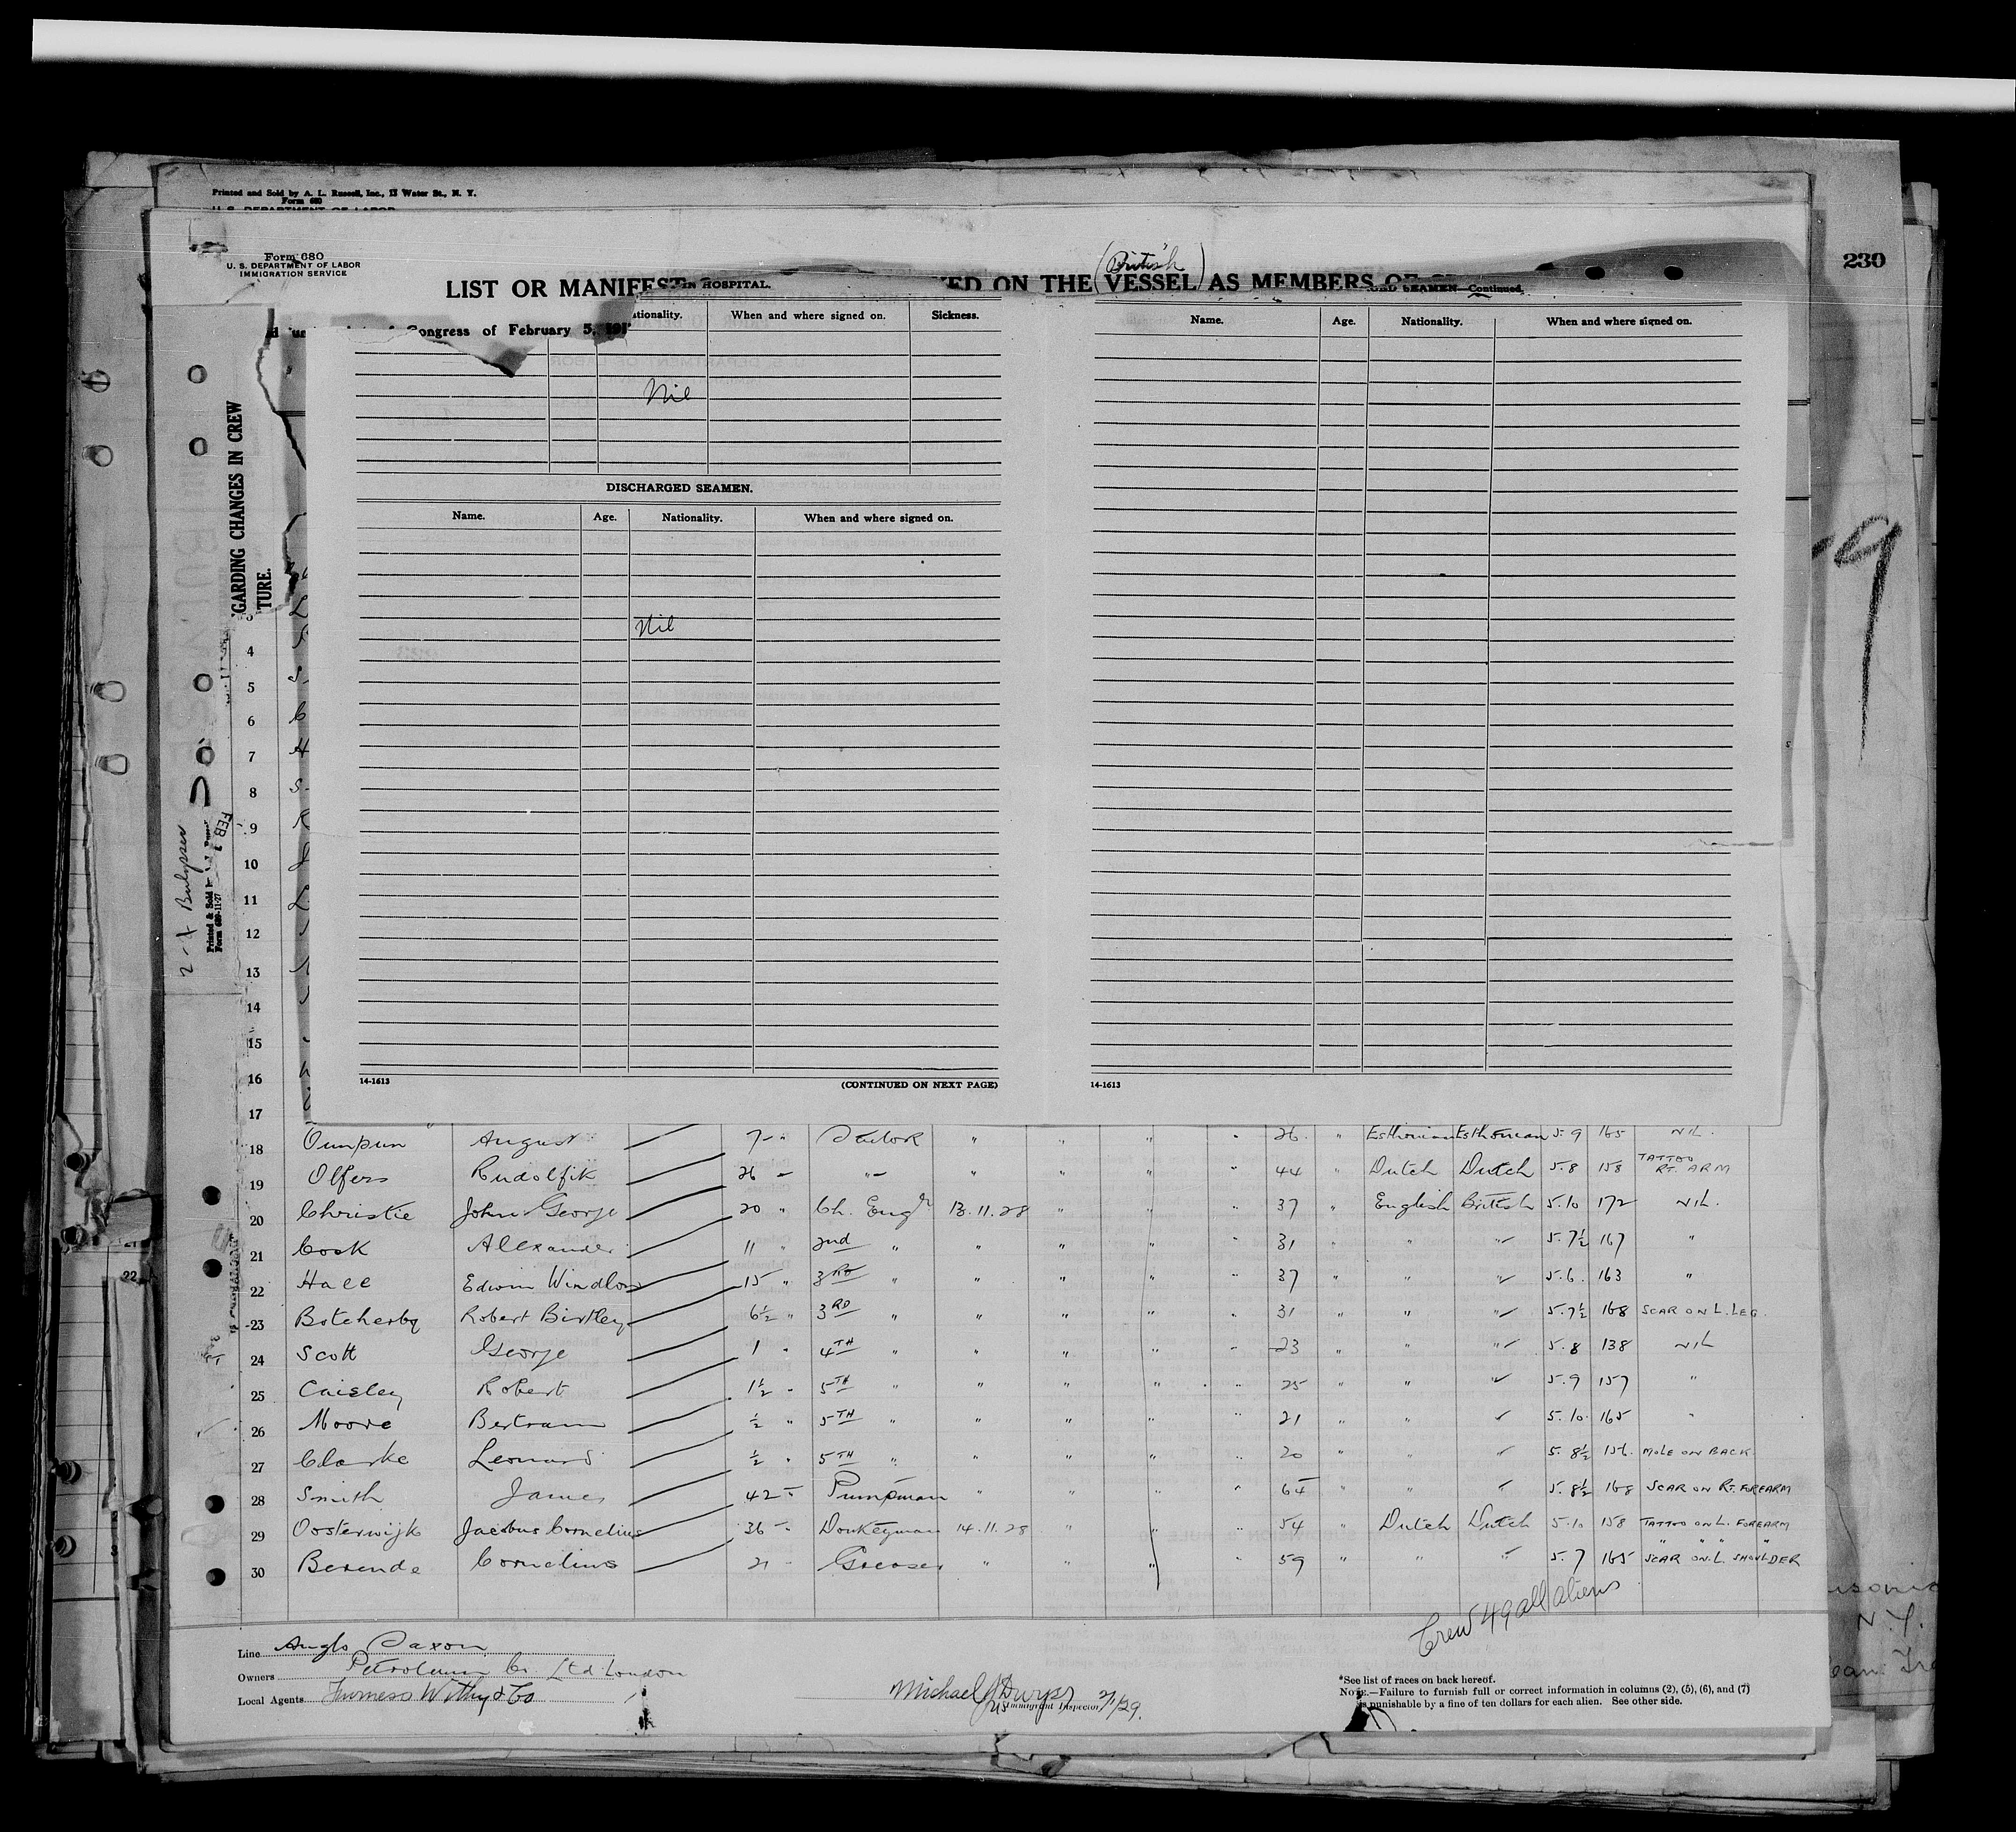 Printed and Sold by A. L. Russell, Inc., 13 Water St., N. Y.
Form 680
U. S. DEPARTMENT OF LABOR
230
Form 680
U. S. DEPARTMENT OF LABOR
IMMIGRATION SERVICE
(British)
LIST OR MANIFEST ON THE VESSEL AS MEMBERS OF
IN HOSPITAL.
SEAMEN—Continued.
Congress of February 5, 191
Nationality. When and where signed on. Sickness.
Nil
DISCHARGED SEAMEN.
Name. Age. Nationality. When and where signed on.
Nil
14-1613 (CONTINUED ON NEXT PAGE)
Name. Age. Nationality. When and where signed on.
14-1613
GARDING CHANGES IN CREW
TURE.
9
2-1 Bulysses
Printed & Sold by
Form 689-11-27
FEB
3
4
5
6
7
8
9
10
11
12
13
14
15
16
17
18 Ounpun August 7 " Sailor " " " " 26 " Esthonian Esthonian 5.9 165 NIL.
19 Olfers Rudolfik 26 " " " " " " 44 " Dutch Dutch 5.8 158 TATTOO RT. ARM
20 Christie John George 20 " Ch. Engr 13.11.28 " " " 37 " English British 5.10 172 NIL.
21 Cook Alexander 11 " 2nd " " " " " 31 " " " 5.7½ 167 "
22 Hall Edwin Windlow 15 " 3RD " " " " " 37 " " " 5.6. 163 "
23 Botcherby Robert Birtley 6½ " 3RD " " " " " 31 " " " 5.7½ 168 SCAR ON L. LEG.
24 Scott George 1 " 4TH " " " " " 23 " " " 5.8 138 NIL
25 Caisley Robert 1½ " 5TH " " " " " 25 " " " 5.9 157 "
26 Moore Bertram ½ " 5TH " " " " " 21 " " " 5.10. 165 "
27 Clarke Leonard ½ " 5TH " " " " " 20 " " " 5.8½ 156. MOLE ON BACK.
28 Smith James 42 " Pumpman " " " " 65 " " " 5.8½ 168 SCAR ON RT. FOREARM
29 Oosterwijk Jacobus Cornelius 36 " Donkeyman 14.11.28 " " " 54 " Dutch Dutch 5.10 158 TATTOO ON L. FOREARM
30 Berende Cornelius 21 " Greaser " " " " 59 " " " 5.7 165 SCAR ON L. SHOULDER
Crew 49 all aliens
Line Anglo Saxon
Owners Petroleum Co. Ltd London
Local Agents Furness Withy & Co
Michael J
US Immigrant Inspector 2/1/29.
*See list of races on back hereof.
NOTE.—Failure to furnish full or correct information in columns (2), (5), (6), and (7)
is punishable by a fine of ten dollars for each alien. See other side.
N.Y.